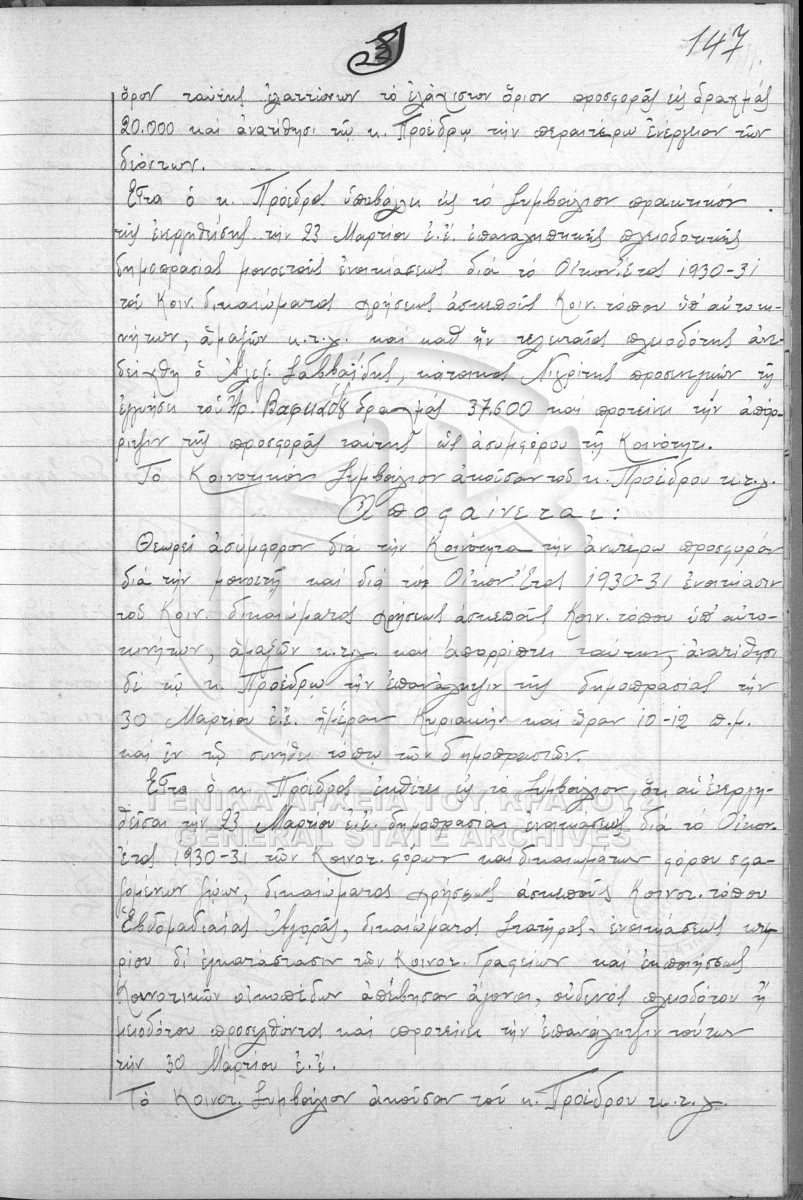 147
ὅρον ταύτης ἐλαττώνων τὸ ἐλάχιστον ὅριον προσφορᾶς εἰς δραχμάς
20.000 καὶ ἀνατίθησι τῷ κ. Προέδρῳ τὴν περαιτέρω ἐνέργειαν τῶν
δεόντων.
Εἶτα ὁ κ. Πρόεδρος ὑποβάλλει εἰς τὸ Συμβούλιον πρακτικὸν
τῆς ἐνεργηθείσης τὴν 23 Μαρτίου ἐ.ἔ. ἐπαναληπτικῆς πλειοδοτικῆς
δημοπρασίας μονοετοῦς ἐνοικιάσεως διὰ τὸ Οἰκον. Ἔτος 1930-31
τοῦ Κοιν. δικαιώματος χρήσεως ἀσκεποῦς Κοιν. τόπου ὑπ' αὐτοκι-
νήτων, ἁμαξῶν κ.τ.λ. καὶ καθ' ἣν τελευταῖος πλειοδότης ἀνε-
δείχθη ὁ Ἀλεξ. Σαββαΐδης, κάτοικος Νιγρίτης προσενεγκὼν τῇ
ἐγγυήσει τοῦ Βαφειάδου δραχμάς 37.600 καὶ προτείνει τὴν ἀπόρ-
ριψιν τῆς προσφορᾶς ταύτης ὡς ἀσυμφόρου τῇ Κοινότητι.
Τὸ Κοινοτικὸν Συμβούλιον ἀκοῦσαν τοῦ κ. Προέδρου κ.τ.λ.
Ἀποφαίνεται:
Θεωρεῖ ἀσύμφορον διὰ τὴν Κοινότητα τὴν ἀνωτέρω προσφορὰν
διὰ τὴν μονοετῆ καὶ διὰ τὸ Οἰκον. Ἔτος 1930-31 ἐνοικίασιν
τοῦ Κοιν. δικαιώματος χρήσεως ἀσκεποῦς Κοιν. τόπου ὑπ' αὐτο-
κινήτων, ἁμαξῶν κ.τ.λ. καὶ ἀπορρίπτει ταύτην, ἀνατίθησι
δὲ τῷ κ. Προέδρῳ τὴν ἐπανάληψιν τῆς δημοπρασίας τὴν
30 Μαρτίου ἐ.ἔ. ἡμέραν Κυριακὴν καὶ ὥραν 10-12 π.μ.
καὶ ἐν τῷ συνήθει τόπῳ τῶν δημοπρασιῶν.
Εἶτα ὁ κ. Πρόεδρος ἐκθέτει εἰς τὸ Συμβούλιον ὅτι αἱ ἐνεργη-
θεῖσαι τὴν 23 Μαρτίου ἐ.ἔ. δημοπρασίαι ἐνοικιάσεως διὰ τὸ Οἰκον.
Ἔτος 1930-31 τῶν Κοινοτ. φόρων καὶ δικαιωμάτων φόρου σφα-
ζομένων ζώων, δικαιώματος χρήσεως ἀσκεποῦς Κοινοτ. τόπου
Ἑβδομαδιαίας Ἀγορᾶς, δικαιώματος Στατῆρος, ἐνοικιάσεως κτι-
ρίου δι' ἐγκατάστασιν τῶν Κοινοτ. Γραφείων καὶ ἐκποιήσεως
Κοινοτικῶν οἰκοπέδων ἀπέβησαν ἄγονοι, οὐδενὸς πλειοδότου ἢ
μειοδότου προσελθόντος καὶ προτείνει τὴν ἐπανάληψιν τούτων
τὴν 30 Μαρτίου ἐ.ἔ.
Τὸ Κοινοτ. Συμβούλιον ἀκοῦσαν τοῦ κ. Προέδρου κ.τ.λ.
ΓΕΝΙΚΑ ΑΡΧΕΙΑ ΤΟΥ ΚΡΑΤΟΥΣ
GENERAL STATE ARCHIVES